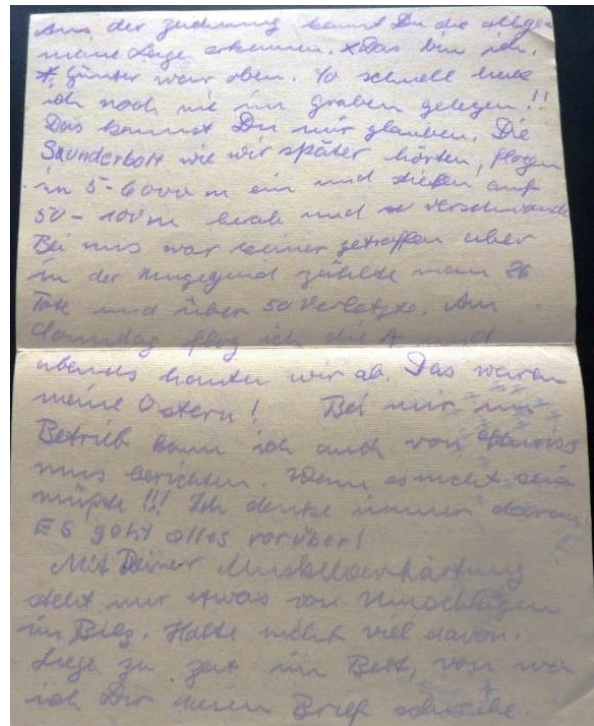 Aus der Zeichnung kannst Du die allge
meine Lage erkennen. x Das bin ich.
*, Günter war oben. So schnell habe
ich noch nie im Graben gelegen!!
Das kannst Du mir glauben. Die
wie wir später hörten, flogen
in 5-6000 m ein und stießen auf
50 - 100 m herab und verschwande
Bei uns war keiner getroffen aber
in der Umgegend zählte man 26
Tote und über 50 Verletzte. Am
Sonntag flog ich die A und
abends hauten wir ab. Das waren
meine Ostern! Bei mir im
Betrieb kann ich auch von
berichten. Wenn es nicht sein
müßte!!! Ich denke immer daran,
ES geht alles vorüber!
Mit Deiner
steht nur etwas von
im Brief. Halte nicht viel davon.
Liege zur Zeit im Bett, von wo
ich Dir diesen Brief schreibe.